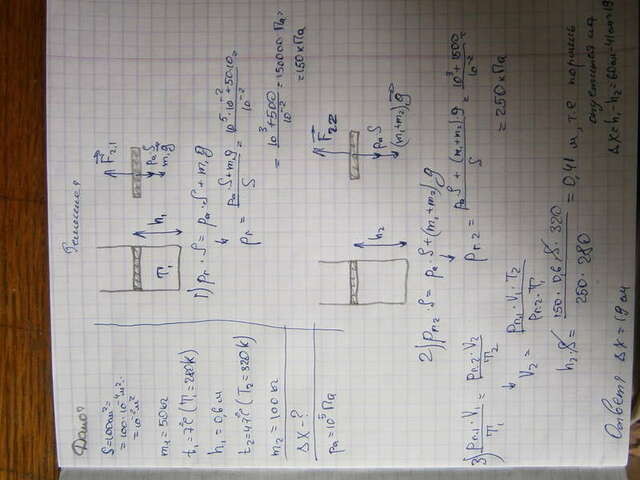 Дано:
S=100см²=
=100·10⁻⁴м²=
=10⁻²м²
m₁=50кг
t₁=7°C (T₁=280K)
h₁=0,6м
t₂=47°C (T₂=320K)
m₂=100кг
Δx-?
pₐ=10⁵Па
Решение
T₁
h₁
F₂,₁
pₐS
m₁g
1) pг·S=pₐ·S+m₁g
↓
pг= (pₐ·S+m₁g)/S = (10⁵·10⁻²+50·10)/10⁻² =
= (10³+500)/10⁻² =150000Па=
=150кПа
h₂
F₂.₂
pₐS
(m₁+m₂)g
2) pг₂·S=pₐ·S+(m₁+m₂)g
↓
pг₂= (pₐ·S+(m₁+m₂)g)/S = (10³+1500)/10⁻² =
=250кПа
3) (pг.₁·V₁)/T₁ = (pг₂·V₂)/T₂
↓
V₂= (pг.₁·V₁·T₂)/(pг.₂·T₁)
h₂·S= (150·0,6·S·320)/(250·280) =0,41м, т.е поршень
опустился на
Δx=h₁-h₂=60см-41см=19
Ответ: Δx=19см